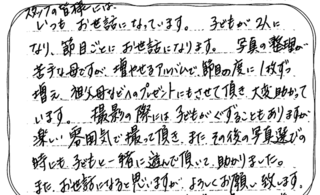 スタッフの皆様には、
いつもお世話になっています。 子どもが2人に
なり、節目ごとにお世話になります。 写真の整理が
苦手な母ですが、増やせるアルバムで、節目の度に1枚ずつ
増え、祖父母などへのプレゼントにもさせて頂き大変助かって
います。 撮影の際には子どもがぐずることもありますが
楽しい雰囲気で撮って頂き、また その後の写真選びの
時にも子どもと一緒に遊んで頂いて、助かりました。
また、お世話になると思いますが、よろしくお願い致します。